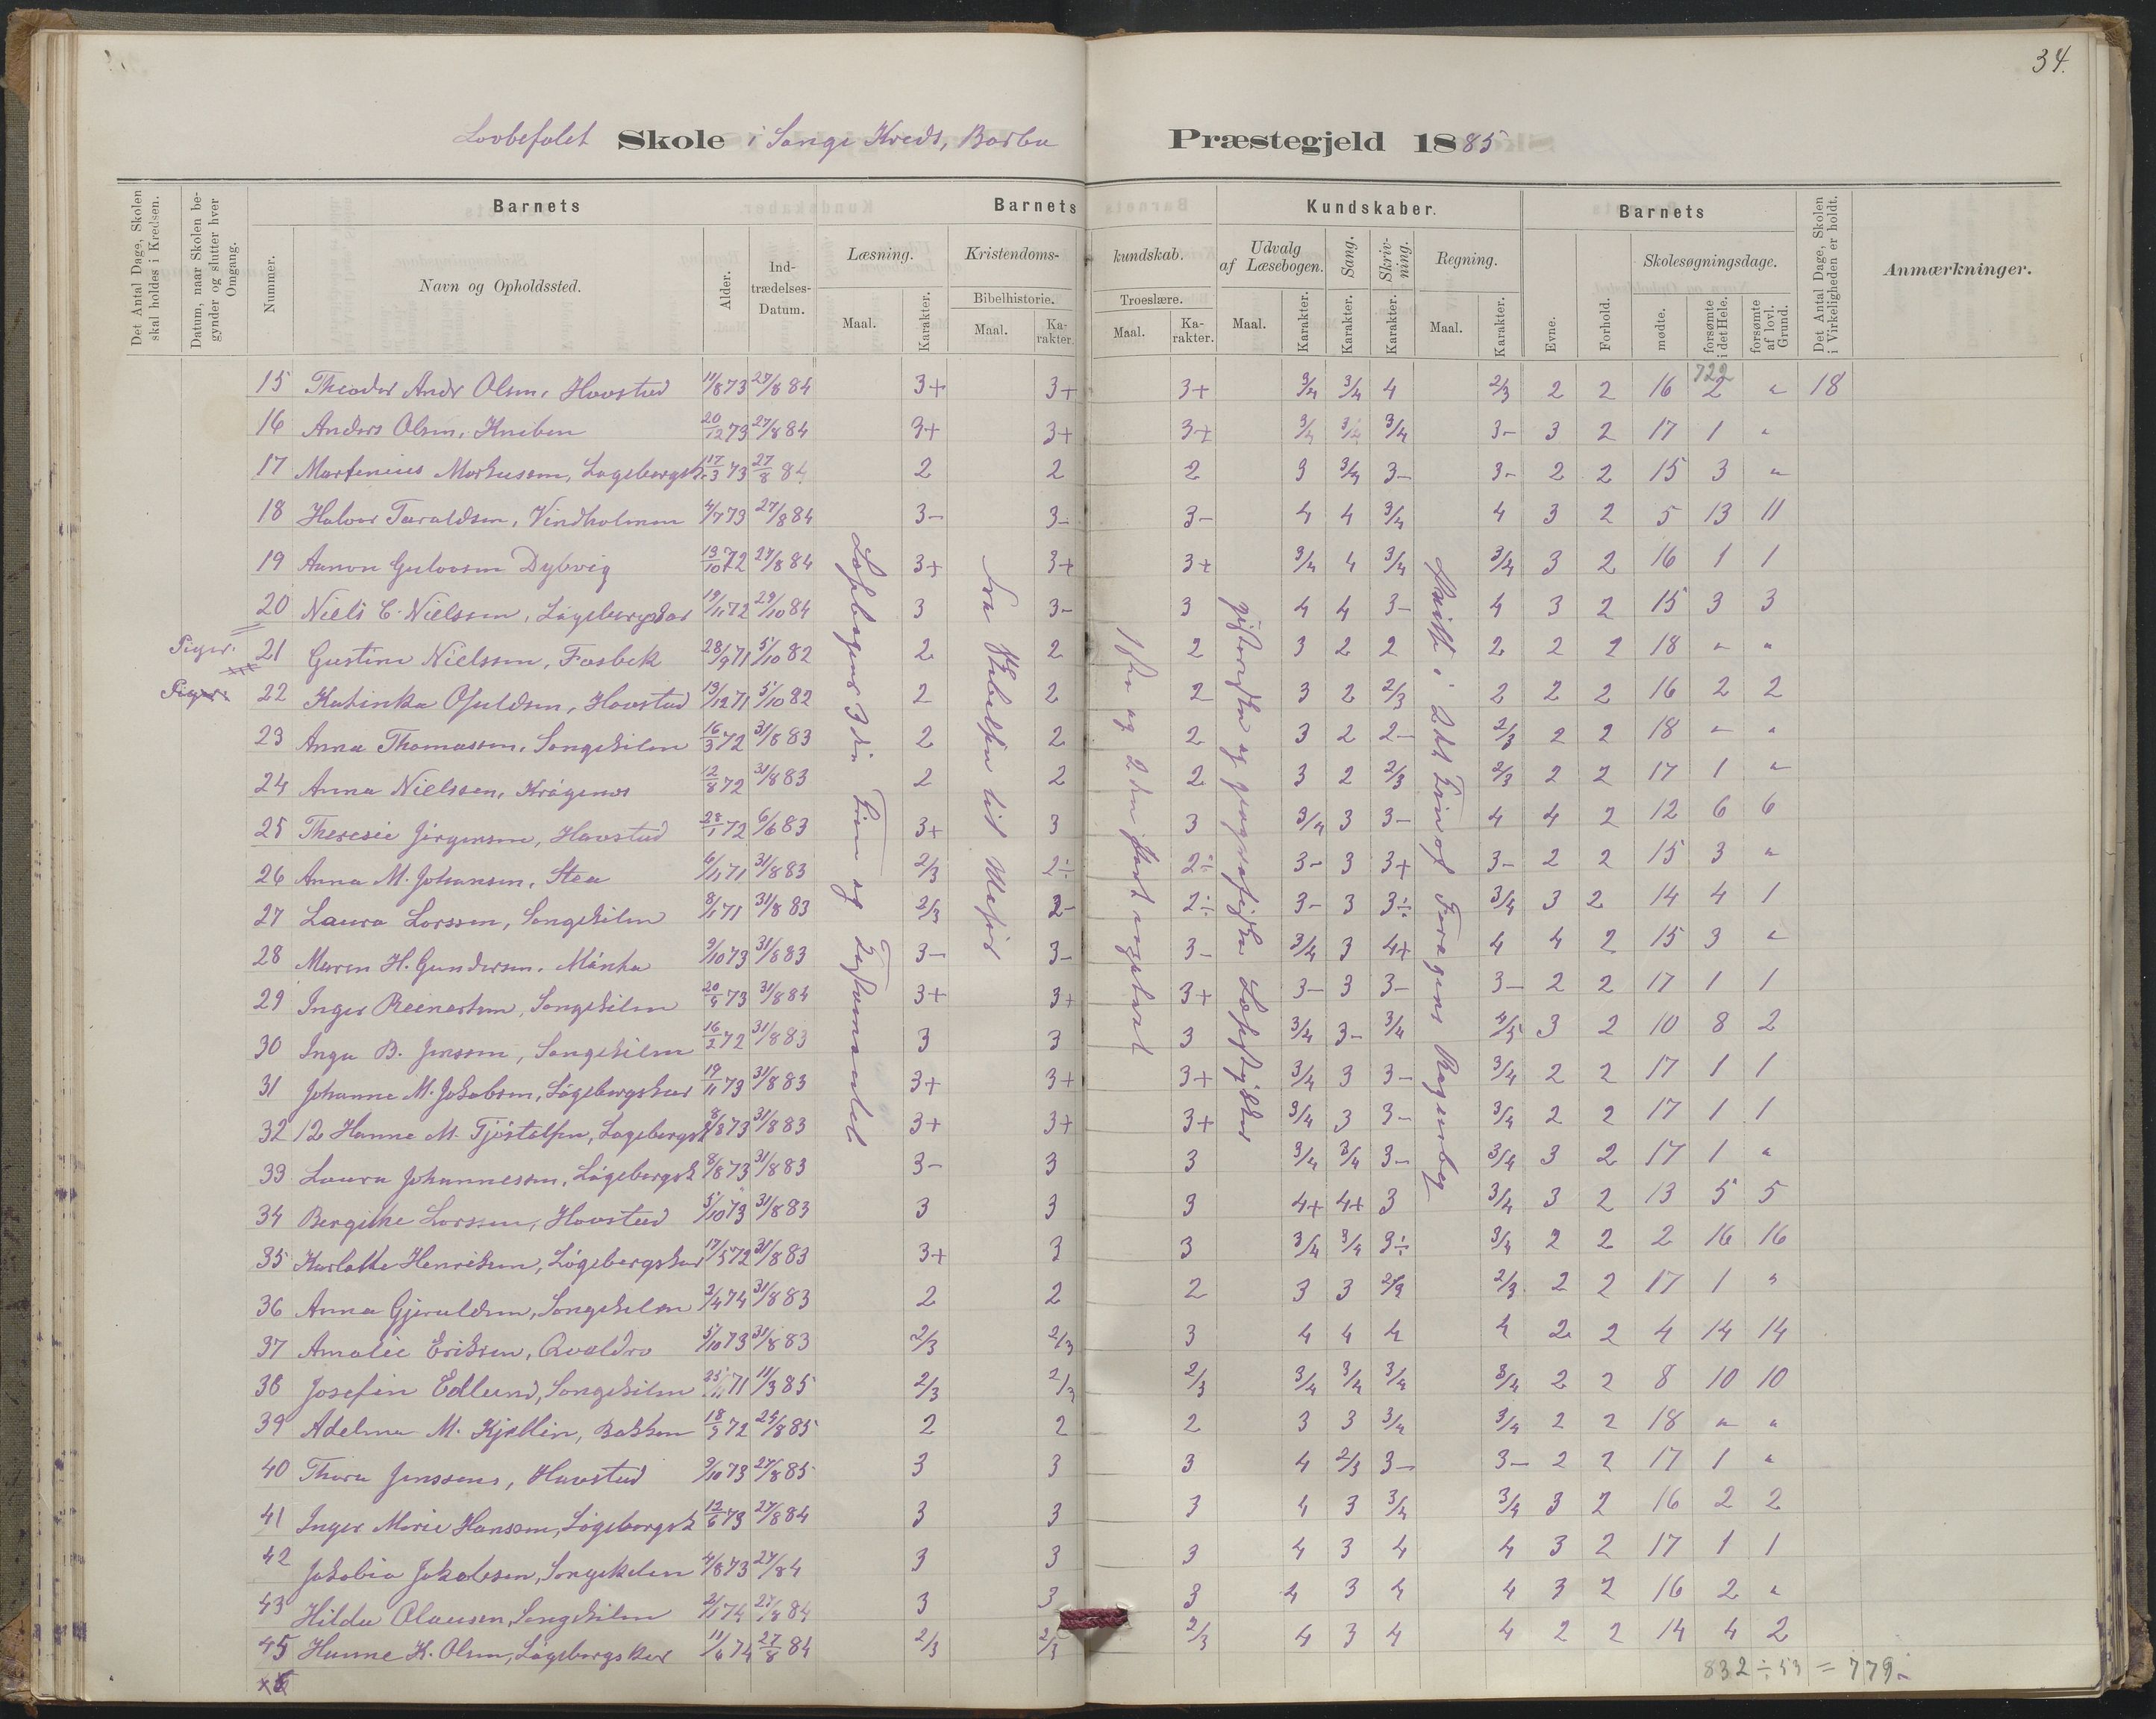 34.
Lovbefalet Skole i Songe Kreds, Barbu Præstegjeld 1885
Det Antal Dage, Skolen skal holdes i Kredsen.
Datum, naar Skolen begynder og slutter hver Omgang.
Barnets
Nummer.
Navn og Opholdssted.
Alder.
Indtrædelses-Datum.
Barnets Kundskaber.
Læsning. Maal. Karakter.
Kristendoms-kundskab.
Bibelhistorie. Maal. Karakter.
Troeslære. Maal. Karakter.
Udvalg af Læsebogen. Maal. Karakter.
Sang. Karakter.
Skrivning. Karakter.
Regning. Maal. Karakter.
Barnets
Evne. Forhold.
Skolesøgningsdage.
mødte. forsømte i det Hele. forsømte af lovl. Grund.
Det Antal Dage, Skolen i Virkeligheden er holdt.
Anmærkninger.
722
15 Theodor Andr Olsen, Havstad 11/8 73 27/8 84 3+ 3+ 3+ 3/4 3/4 4 2/3 2 2 16 2 " 18
16 Anders Olsen, Kniben 20/12 73 27/8 84 3+ 3+ 3+ 3/4 3/4 3/4 3- 3 2 17 1 "
17 Martenius Markussen, Løgebergsk. 17/3 73 27/8 84 2 2 2 3 3/4 3- 3- 2 2 15 3 "
18 Halvor Taraldsen, Vindholmen 4/7 73 27/8 84 3- 3- 3- 4 4 3/4 4 3 2 5 13 11
19 Aanon Gulovsen Dybvig 13/10 72 27/8 84 3+ 3+ 3+ 3/4 4 3/4 3/4 3 2 16 1 1
20 Niels C. Nielssen, Løgebergskar 19/11 72 29/10 84 3 3- 3 4 4 3- 4 3 2 15 3 3
Piger. 21 Gustine Nielssen, Fosbek 28/9 71 5/10 82 2 2 2 3 2 2 2 2 2 18 " "
Piger. 22 Katinka Osuldsen, Havstad 13/12 71 5/10 82 2 2 2 3 2 2/3 2 2 2 16 2 2
23 Anna Thomassen, Songekilen 16/3 72 31/8 83 2 2 2 3 2 2- 2/3 2 2 18 " "
24 Anna Nielssen, Krågenes 12/8 72 31/8 83 2 2 2 3 2 2/3 2/3 2 2 17 1 "
25 Theresie Jörgensen, Havstad 28/1 72 6/6 83 3+ 3 3 3/4 3 3- 4 4 2 12 6 6
26 Anna M. Johansen, Stea 6/11 71 31/8 83 2/3 2÷ 2÷ 3- 3 3+ 3- 2 2 15 3 "
27 Laura Larssen, Songekilen 8/1 71 31/8 83 2/3 2- 2÷ 3- 3 3÷ 3/4 3 2 14 4 1
28 Maren H. Gundersen, 9/10 73 31/8 83 3- 3- 3- 3/4 3 4+ 4 4 2 15 3 "
29 Inger Reinertsen, Songekilen 20/4 73 31/8 84 3+ 3+ 3+ 3- 3 3- 3- 2 2 17 1 1
30 Inga B. Jenssen, Songekilen 16/2 72 31/8 83 3 3 3 3/4 3- 3/4 4/5 3 2 10 8 2
31 Johanne M. Jakobsen, Løgebergskar 19/11 73 31/8 83 3+ 3+ 3+ 3/4 3 3- 3/4 2 2 17 1 1
32 12 Hanne M. Tjöstelsen, Løgebergsk 8/8 73 31/8 83 3+ 3+ 3+ 3/4 3 3- 3/4 2 2 17 1 1
33 Laura Johannessen, Løgebergsk 8/8 73 31/8 83 3- 3 3 3/4 3/4 3- 3/4 3 2 17 1 "
34 Bergithe Larssen, Havstad 5/10 73 31/8 83 3 3 3 4+ 4+ 3 3/4 3 2 13 5 5
35 Karlotte Henriksen, Løgebergskar 17/5 72 31/8 83 3+ 3 3 3/4 3/4 3÷ 3/4 2 2 2 16 16
36 Anna Gjeruldsen, Songekilen 3/4 74 31/8 83 2 2 2 3 3 2/3 2/3 2 2 17 1 "
37 Amalie Eriksen, 5/10 73 31/8 83 2/3 2/3 3 4 4 4 4 2 2 4 14 14
38 Josefin Edlund, Songekilen 25/11 71 11/3 85 2/3 2/3 2/3 3/4 3/4 3/4 3/4 2 2 8 10 10
39 Adelma M. Kjellin, Bakken 18/9 72 25/8 85 2 2 2 3 3 3/4 3/4 2 2 18 " "
40 Thora Jenssens, Havstad 9/10 73 27/8 85 3 3 3 4 2/3 3- 3- 2 2 17 1 "
41 Inger Marie Hansen, Løgebergsk 12/6 73 27/8 84 3 3 3 4 3 3/4 3/4 3 2 16 2 2
42 Jakobia Jakobsen, Songekilen 4/8 73 27/84 3 3 3 4 3 4 4 3 2 17 1 1
43 Hilda Olausen, Songekilen 2/1 74 27/8 84 3 3 3 4 3 4 4 3 2 16 2 "
45 Hanne K. Olsen, Løgebergskar 11/4 74 27/8 84 2/3 2/3 2/3 4 3 4 4 2 2 14 4 2
Læsebogens 3die Trin og
Fra til
1ste og 2den Part
historiske og geografiske Læsestykker
i 2det Trin af Regnebog
832 ÷ 53 = 779.